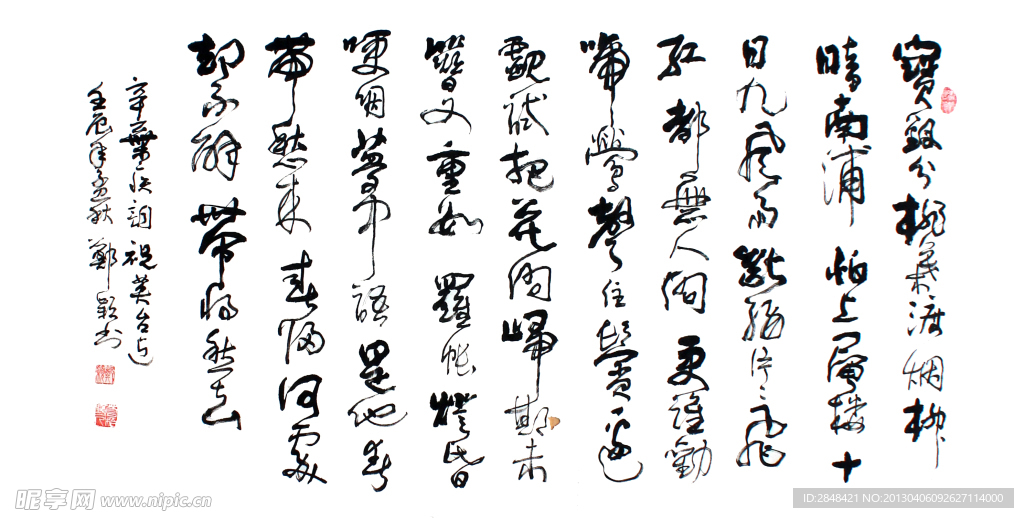 寶釵分桃葉渡烟柳
暗南浦怕上層楼十
日九風雨斷腸片片飛
红都無人更誰勸
啼鶯聲住鬢邊
覷試把花歸期
簪又重數羅帐燈昏
哽咽夢中語是他春
帶愁来春归何處
却不解帶將愁去
辛棄疾詞祝英台近
壬辰年孟秋鄭书
昵享网 www.nipic.cn
ID:2848421 NO:20130406092627114000